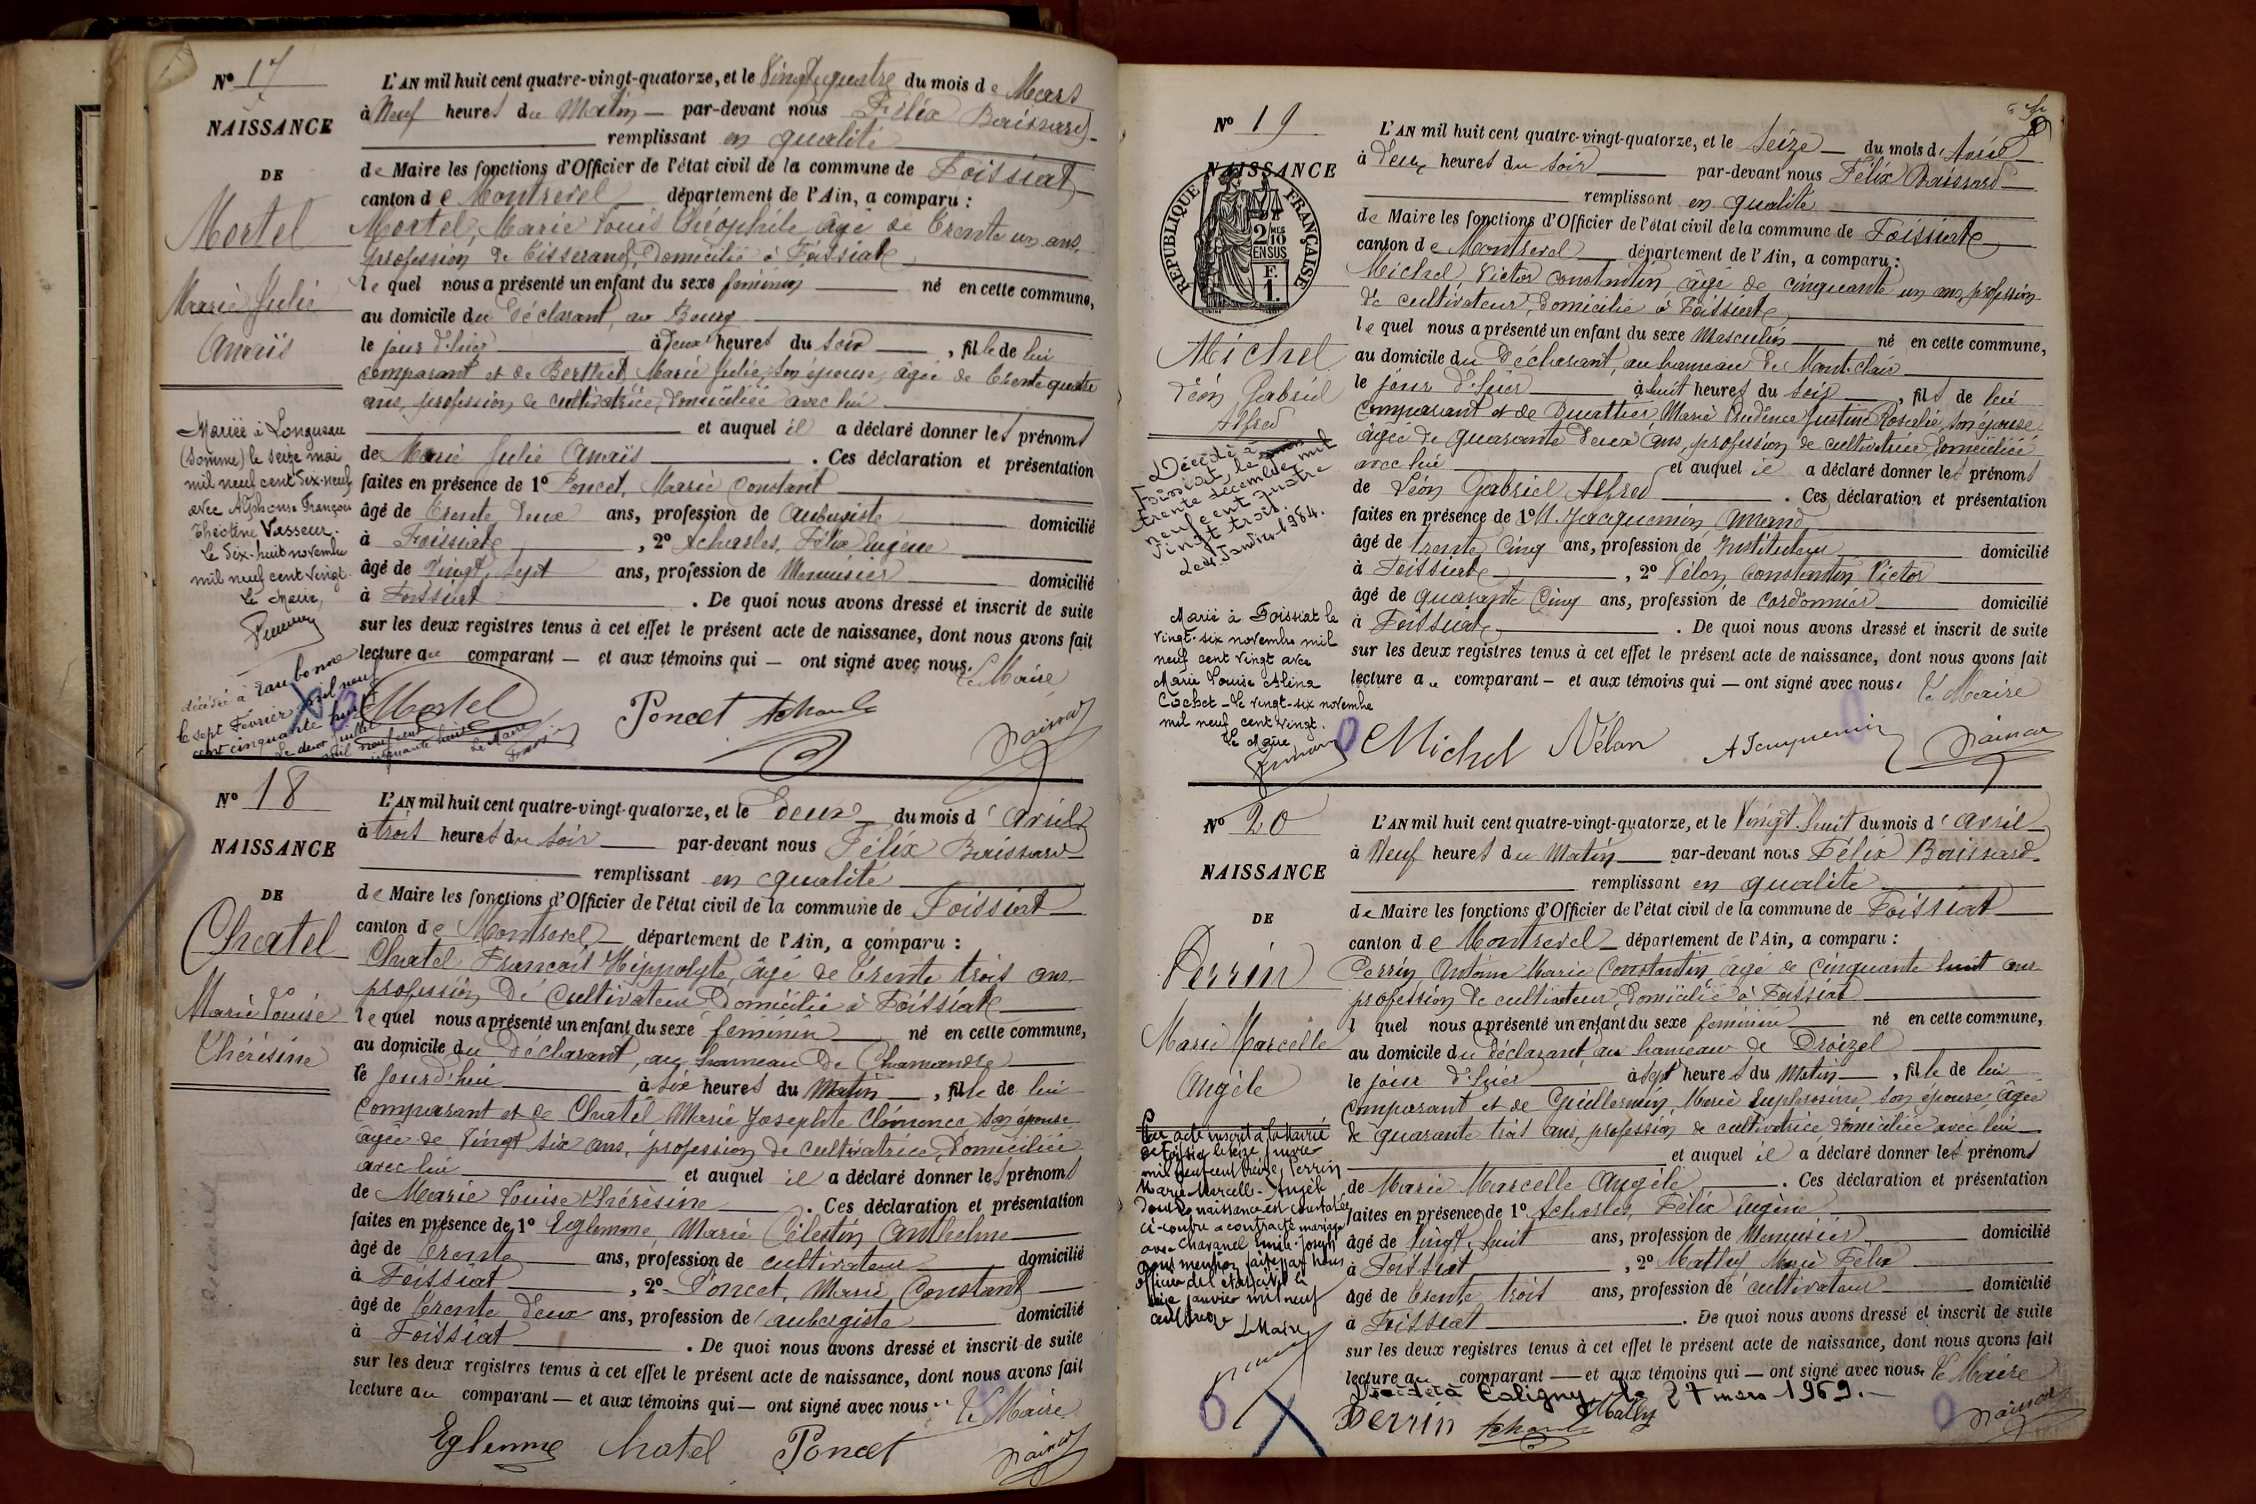 Nº 17
NAISSANCE
DE
Mortel
Marie Julie
Anaïs
Mariée à Longueau
(Somme) le seize mai
mil neuf cent dix-neuf
avec Alphonse François
Théotène Vasseur.
Le dix-huit novembre
mil neuf cent vingt.
Le Maire,
décédée à Eaubonne
le sept Février mil neuf
cent cinquante huit
Le deux juillet
mil neuf cent
cinquante huit
Le Maire
L'AN mil huit cent quatre-vingt-quatorze, et le Vingt quatre du mois de Mars
à Neuf heures du Matin — par-devant nous Félix Boissard
remplissant en qualité
de Maire les fonctions d'Officier de l'état civil de la commune de Foissiat
canton de Montrevel département de l'Ain, a comparu :
Mortel, Marie Louis Théophile, âgé de trente un ans,
profession de tisserand, domicilié à Foissiat
lequel nous a présenté un enfant du sexe féminin né en cette commune,
au domicile du déclarant, au Bourg
le jour d'hier à deux heures du soir, fille de lui
comparant et de Berthet, Marie Julie, son épouse, âgée de trente quatre
ans, profession de cultivatrice, domiciliée avec lui
et auquel il a déclaré donner les prénoms
de Marie Julie Anaïs. Ces déclaration et présentation
faites en présence de 1º Poncet, Marie Constant
âgé de trente deux ans, profession de aubergiste domicilié
à Foissiat, 2º Acharles, Félix Eugène
âgé de vingt sept ans, profession de Menuisier domicilié
à Foissiat. De quoi nous avons dressé et inscrit de suite
sur les deux registres tenus à cet effet le présent acte de naissance, dont nous avons fait
lecture au comparant — et aux témoins qui — ont signé avec nous. Le Maire
Mortel Poncet Acharles
Nº 18
NAISSANCE
DE
Chatel
Marie Louise
Thérésine
L'AN mil huit cent quatre-vingt-quatorze, et le deux du mois d'avril
à trois heures du soir par-devant nous Félix Boissard
remplissant en qualité
de Maire les fonctions d'Officier de l'état civil de la commune de Foissiat
canton de Montrevel département de l'Ain, a comparu :
Chatel François Hippolyte, âgé de trente trois ans
profession de cultivateur, domicilié à Foissiat
lequel nous a présenté un enfant du sexe féminin né en cette commune,
au domicile du déclarant, au hameau de Chamandre
le jourd'hui à six heures du matin, fille de lui
comparant et de Chatel Marie Josephte Clémence, son épouse
âgée de vingt six ans, profession de cultivatrice, domiciliée
avec lui et auquel il a déclaré donner les prénoms
de Marie Louise Thérésine. Ces déclaration et présentation
faites en présence de 1º Eglemme, Marie Célestin Anthelme
âgé de trente ans, profession de cultivateur domicilié
à Foissiat, 2º Poncet, Marie Constant
âgé de trente deux ans, profession d'aubergiste domicilié
à Foissiat. De quoi nous avons dressé et inscrit de suite
sur les deux registres tenus à cet effet le présent acte de naissance, dont nous avons fait
lecture au comparant — et aux témoins qui — ont signé avec nous. Le Maire
Eglemme Chatel Poncet
Nº 19
NAISSANCE
RÉPUBLIQUE FRANÇAISE
2 MES
10
EN SUS
1 F.
Michel
Léon Gabriel
Alfred
Décédé à
Foissiat, le
trente décembre mil
neuf cent quatre
vingt trois.
Le 4 Janvier 1984.
Marié à Foissiat le
vingt-six novembre mil
neuf cent vingt avec
Marie Louise Alina
Cochet — Le vingt-six novembre
mil neuf cent vingt.
Le Maire
L'AN mil huit cent quatre-vingt-quatorze, et le Seize du mois d'Avril
à deux heures du soir par-devant nous Félix Boissard
remplissant en qualité
de Maire les fonctions d'Officier de l'état civil de la commune de Foissiat
canton de Montrevel département de l'Ain, a comparu :
Michel, Victor Constantin, âgé de cinquante un ans, profession
de cultivateur, domicilié à Foissiat
lequel nous a présenté un enfant du sexe Masculin né en cette commune,
au domicile du déclarant, au hameau de Mont-clair
le jour d'hier à huit heures du soir, fils de lui
comparant et de Buattier, Marie Prudence Justine Rosalie, son épouse
âgée de quarante deux ans, profession de cultivatrice, domiciliée
avec lui et auquel il a déclaré donner les prénoms
de Léon Gabriel Alfred. Ces déclaration et présentation
faites en présence de 1º M. Jacquemin Amand
âgé de trente cinq ans, profession de Instituteur domicilié
à Foissiat, 2º Vélon, Constantin Victor
âgé de quarante cinq ans, profession de cordonnier domicilié
à Foissiat. De quoi nous avons dressé et inscrit de suite
sur les deux registres tenus à cet effet le présent acte de naissance, dont nous avons fait
lecture au comparant — et aux témoins qui — ont signé avec nous. Le Maire
Michel Vélon A Jacquemin
Nº 20
NAISSANCE
DE
Perrin
Marie Marcelle
Angèle
Par acte inscrit à la Mairie
de Foissiat le seize janvier
mil neuf cent treize, Perrin
Marie-Marcelle-Angèle
dont la naissance est constatée
ci-contre a contracté mariage
avec Charanel Emile-Joseph
dont mention faite par nous
officier de l'état civil le
seize janvier mil neuf
cent treize
Le Maire
L'AN mil huit cent quatre-vingt-quatorze, et le Vingt huit du mois d'avril
à Neuf heures du Matin par-devant nous Félix Boissard
remplissant en qualité
de Maire les fonctions d'Officier de l'état civil de la commune de Foissiat
canton de Montrevel département de l'Ain, a comparu :
Perrin Antoine Marie Constantin, âgé de cinquante huit ans
profession de cultivateur, domicilié à Foissiat
lequel nous a présenté un enfant du sexe féminin né en cette commune,
au domicile du déclarant, au hameau de Droizel
le jour d'hier à sept heures du Matin, fille de lui
comparant et de Guillermin, Marie Euphrosine son épouse, âgée
de quarante trois ans, profession de cultivatrice domiciliée avec lui
et auquel il a déclaré donner les prénoms
de Marie Marcelle Angèle. Ces déclaration et présentation
faites en présence de 1º Acharles, Félix Eugène
âgé de vingt huit ans, profession de Menuisier domicilié
à Foissiat, 2º Mathy Marie Félix
âgé de trente trois ans, profession de cultivateur domicilié
à Foissiat. De quoi nous avons dressé et inscrit de suite
sur les deux registres tenus à cet effet le présent acte de naissance, dont nous avons fait
lecture au comparant — et aux témoins qui — ont signé avec nous. Le Maire
Décédée à Caligny le 27 mars 1969.
Perrin Acharles Mathy